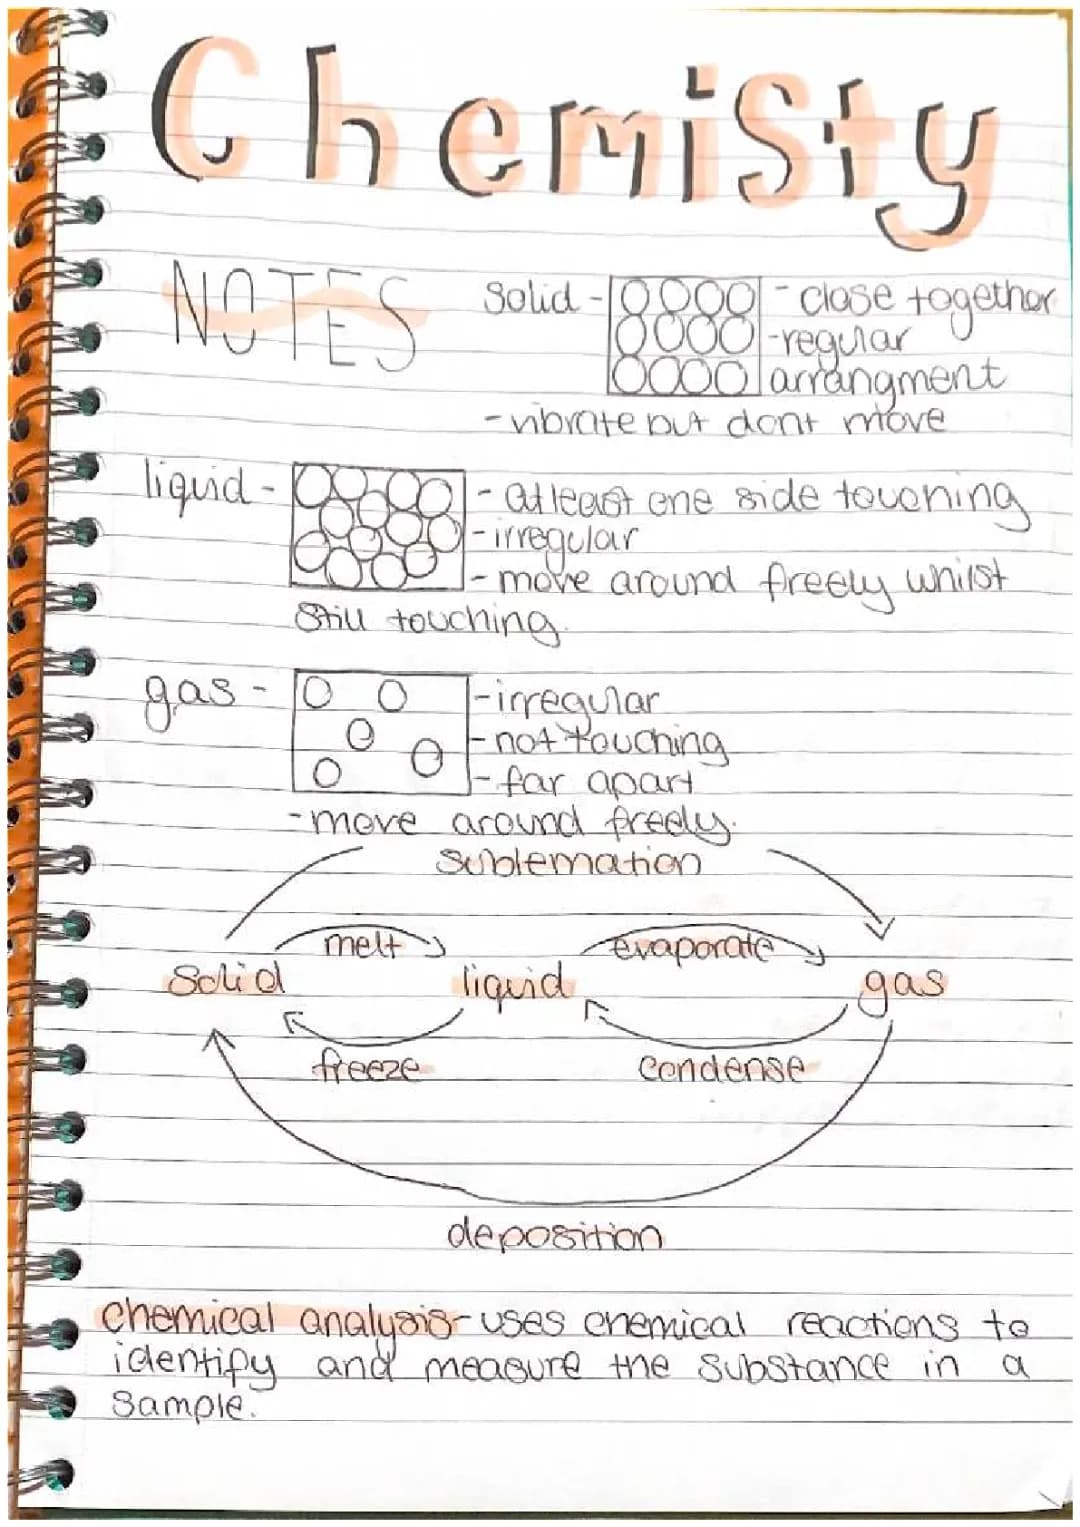 Chemisty
NOTES
Solid - - close together
- regular
arrangment
- vibrate but dont move
liquid - - at least one side touching
- irregular
- move around freely whilst
still touching.
gas - - irregular
- not touching
- far apart
- move around freely.
sublemation
melt evaporate
solid liquid gas
freeze condense
deposition
chemical analysis - uses chemical reactions to
identify and measure the substance in a
sample.